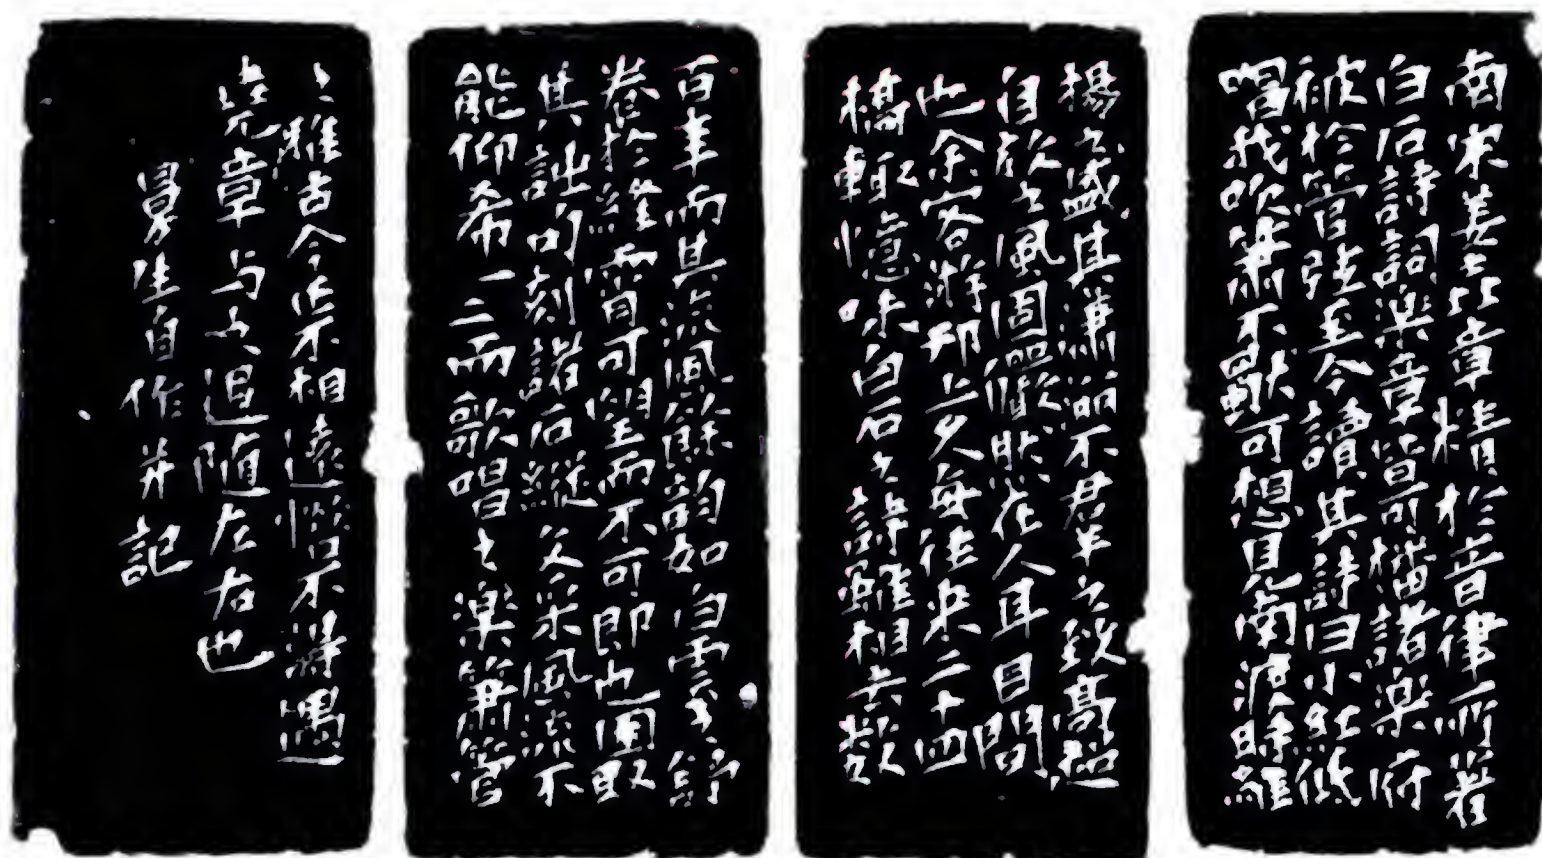 南宋姜尧章精於音律所著
白石詩詞樂章皆可播諸樂府
被於管弦至今讀其詩曰小紅低
唱我吹箫不獸可想見南渡時維
楊之盛其萧品不君年之致高超
自歎之風固照然在人耳目間
也余客游邗上久每往来二十四
橋輒憶味白石之詩雖相去数
百年而其流風餘韵如白雲舒
卷於維霄可望而不可即也面取
其詩句刻諸石縱文采風流不
能仰希一二而歌唱之樂箫管
之雅古今迄不相遠惜不將遇
尧章与之追随左右也
曼生自作并記